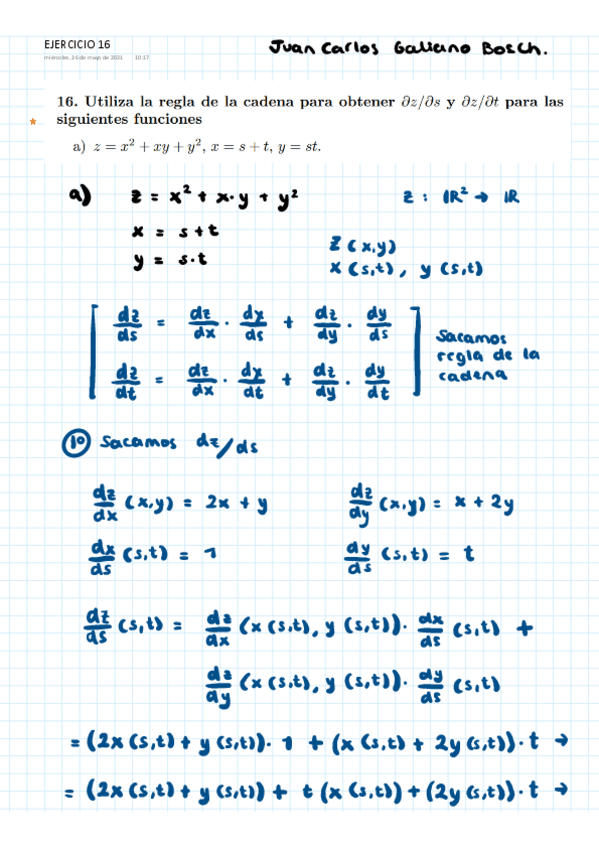 EJERCICIO 16
miércoles, 26 de mayo de 2021 10:17
Juan Carlos Galiano Bosch.
16. Utiliza la regla de la cadena para obtener ∂z/∂s y ∂z/∂t para las
siguientes funciones
a) z = x² + xy + y², x = s + t, y = st.
a) z = x² + x·y + y² z : ℝ² → ℝ
x = s+t
y = s·t
z(x,y)
x(s,t), y(s,t)
dz/ds = dz/dx · dx/ds + dz/dy · dy/ds
dz/dt = dz/dx · dx/dt + dz/dy · dy/dt
Sacamos
regla de la
cadena
1º Sacamos dz/ds
dz/dx (x,y) = 2x + y dz/dy (x,y) = x + 2y
dx/ds (s,t) = 1 dy/ds (s,t) = t
dz/ds (s,t) = dz/dx (x(s,t), y(s,t)) · dx/ds (s,t) +
dz/dy (x(s,t), y(s,t)) · dy/ds (s,t)
= (2x(s,t) + y(s,t)) · 1 + (x(s,t) + 2y(s,t)) · t →
= (2x(s,t) + y(s,t)) + t(x(s,t)) + (2y(s,t)) · t →